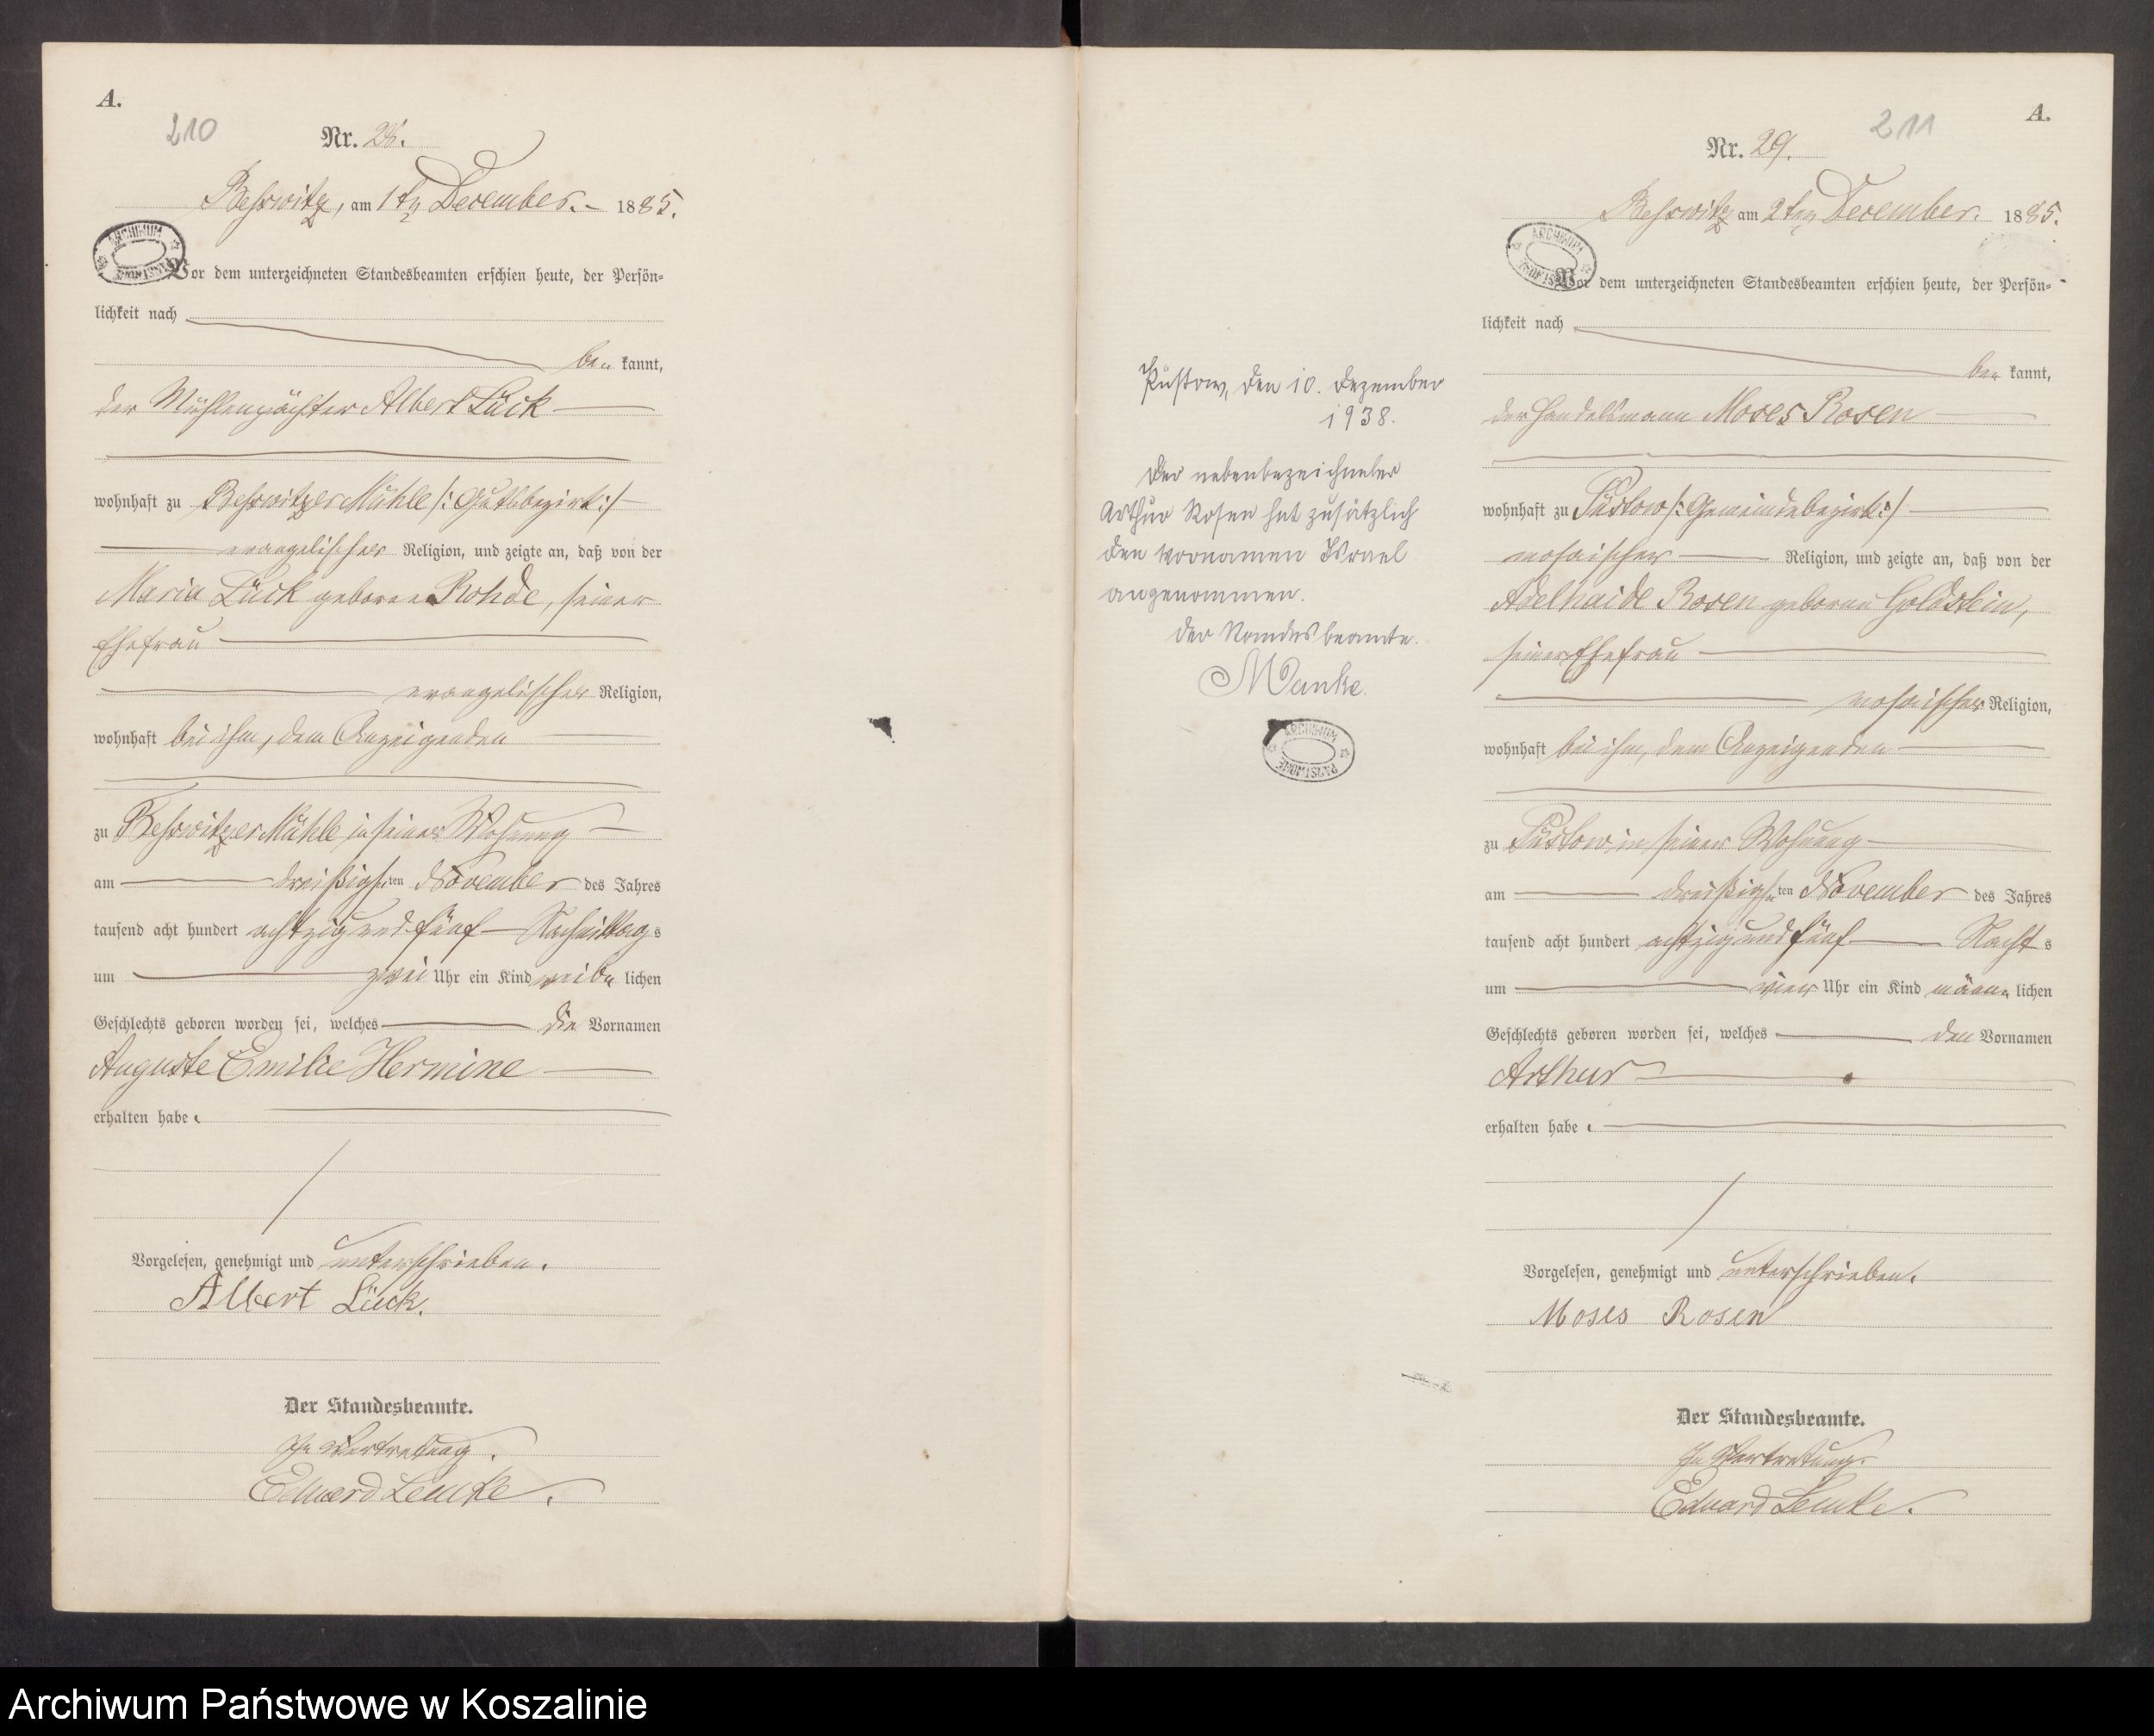 A.
210
Nr. 28.
Beßwitz, am 1ten December. 1885.
ARCHIWUM PAŃSTWOWE
Vor dem unterzeichneten Standesbeamten erschien heute, der Persön-
lichkeit nach
be- kannt,
der Mühlenpächter Albert Lück
wohnhaft zu Beßwitzer Mühle /: Gutsbezirk :/
evangelischer Religion, und zeigte an, daß von der
Maria Lück geborene Rohde, seiner
Ehefrau
evangelischer Religion,
wohnhaft bei ihm, dem Anzeigenden
zu Beßwitzer Mühle in seiner Wohnung
am dreißigsten November des Jahres
tausend acht hundert achtzig und fünf Nachmittags
um zwei Uhr ein Kind weib- lichen
Geschlechts geboren worden sei, welches die Vornamen
Auguste Emilie Hermine
erhalten habe.
Vorgelesen, genehmigt und unterschrieben.
Albert Lück.
Der Standesbeamte.
In Vertretung.
Eduard Lemke.
Püstow, den 10. Dezember
1938.
Der nebenbezeichneter
Arthur Rosen hat zusätzlich
den Vornamen Israel
angenommen.
Der Standesbeamte.
Manke.
ARCHIWUM PAŃSTWOWE
A.
211
Nr. 29.
Beßwitz am 2ten December. 1885.
ARCHIWUM PAŃSTWOWE
Vor dem unterzeichneten Standesbeamten erschien heute, der Persön-
lichkeit nach
be- kannt,
der Handelsmann Moses Rosen
wohnhaft zu Püstow /: Gemeindebezirk :/
mosaischer Religion, und zeigte an, daß von der
Adelhaide Rosen geborne Goldstein,
seiner Ehefrau
mosaischer Religion,
wohnhaft bei ihm, dem Anzeigenden
zu Püstow in seiner Wohnung
am dreißigsten November des Jahres
tausend acht hundert achtzig und fünf Nachts
um vier Uhr ein Kind männ- lichen
Geschlechts geboren worden sei, welches den Vornamen
Arthur
erhalten habe.
Vorgelesen, genehmigt und unterschrieben.
Moses Rosen
Der Standesbeamte.
In Vertretung.
Eduard Lemke.
Archiwum Państwowe w Koszalinie